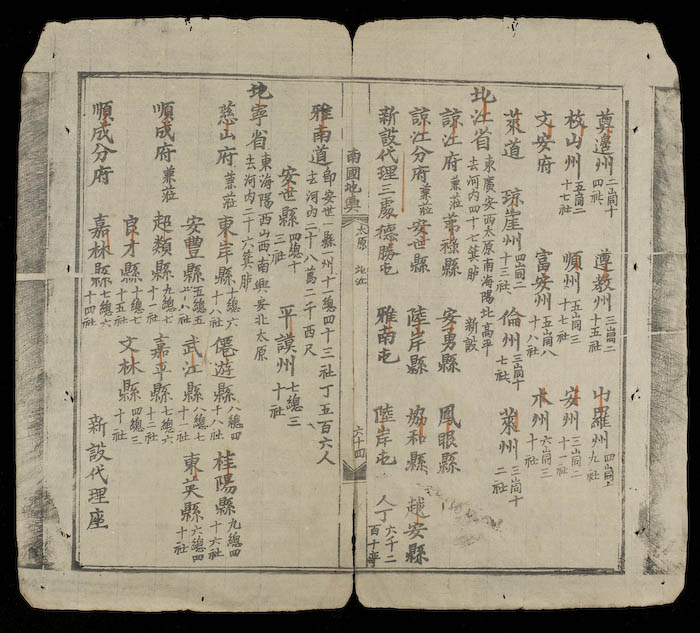 奠邊州 二山同十四社 遵教州 三山同二十五社 山羅州 四山同二九社
枚山州 五山同二十七社 順州 五山同三十七社 安州 三山同二十一社
文安府 富安州 五山同八十八社 木州 六山同三十社
萊道 瓊崖州 四山同二十三社 倫州 三山同十七社 萊州 三山同十二社
北江省 東廣安西太原南海陽北高平 去河內四十七箕肸 新設
諒江府 兼蒞 安勇縣 鳳眼縣
諒江分府 兼蒞 安世縣 陸岸縣 協和縣 越安縣
新設代理三處 德勝屯 雅南屯 陸岸屯 人丁六千二百十
南國地輿 太原 北江 六十四
雅南道 即安世一縣一州十總四十三社丁五百六人 去河內二十八萬二千西尺
安世縣 四總十三社 平謨州 七總三十社
北寧省 東海陽西山西南興安北太原 去河內二十六箕肸
慈山府 兼蒞 東岸縣 十總六十八社 僊遊縣 八總四十八社 桂陽縣 九總四十六社
安豐縣 五總五十八社 武江縣 八總七十社 東英縣 六總四十社
順成府 兼蒞 超類縣 九總七十二社 嘉平縣 七總六十二社
良才縣 十總七十五社 文林縣 四總三十社
順成分府 嘉林縣 七總六十四社 新設代理座